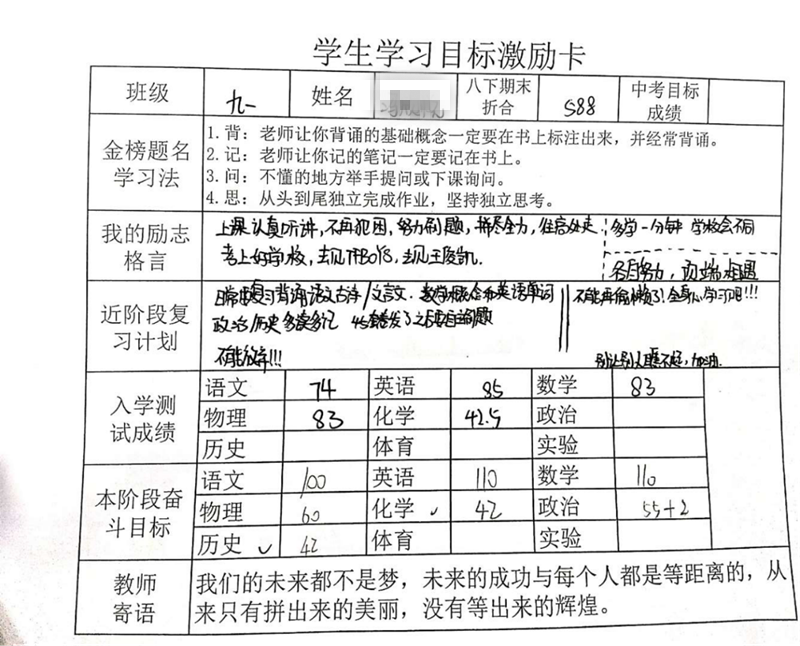 学生学习目标激励卡
班级 九一 姓名 八下期末折合 588 中考目标成绩
金榜题名学习法
1. 背：老师让你背诵的基础概念一定要在书上标注出来，并经常背诵。
2. 记：老师让你记的笔记一定要记在书上。
3. 问：不懂的地方举手提问或下课询问。
4. 思：从头到尾独立完成作业，坚持独立思考。
我的励志格言
上课认真听讲，不再犯困，努力刷题，拼尽全力，住宿处处
考上好学校，去见TFBOYS，去见王俊凯.
多学一分钟 学校会不同
各自努力，顶端相遇
近阶段复习计划
日常复习背诵语文古诗/文言文. 数学概念和英语单词
政治/历史 多读多记
不能放弃!!!
不能再偷懒了! 全身心学习吧!!!
加油.
入学测试成绩
语文 74 英语 85 数学 83
物理 83 化学 42.5 政治
历史 体育 实验
本阶段奋斗目标
语文 100 英语 110 数学 110
物理 60 化学 42 政治 55+2
历史 42 体育 实验
教师寄语
我们的未来都不是梦，未来的成功与每个人都是等距离的，从
来只有拼出来的美丽，没有等出来的辉煌。